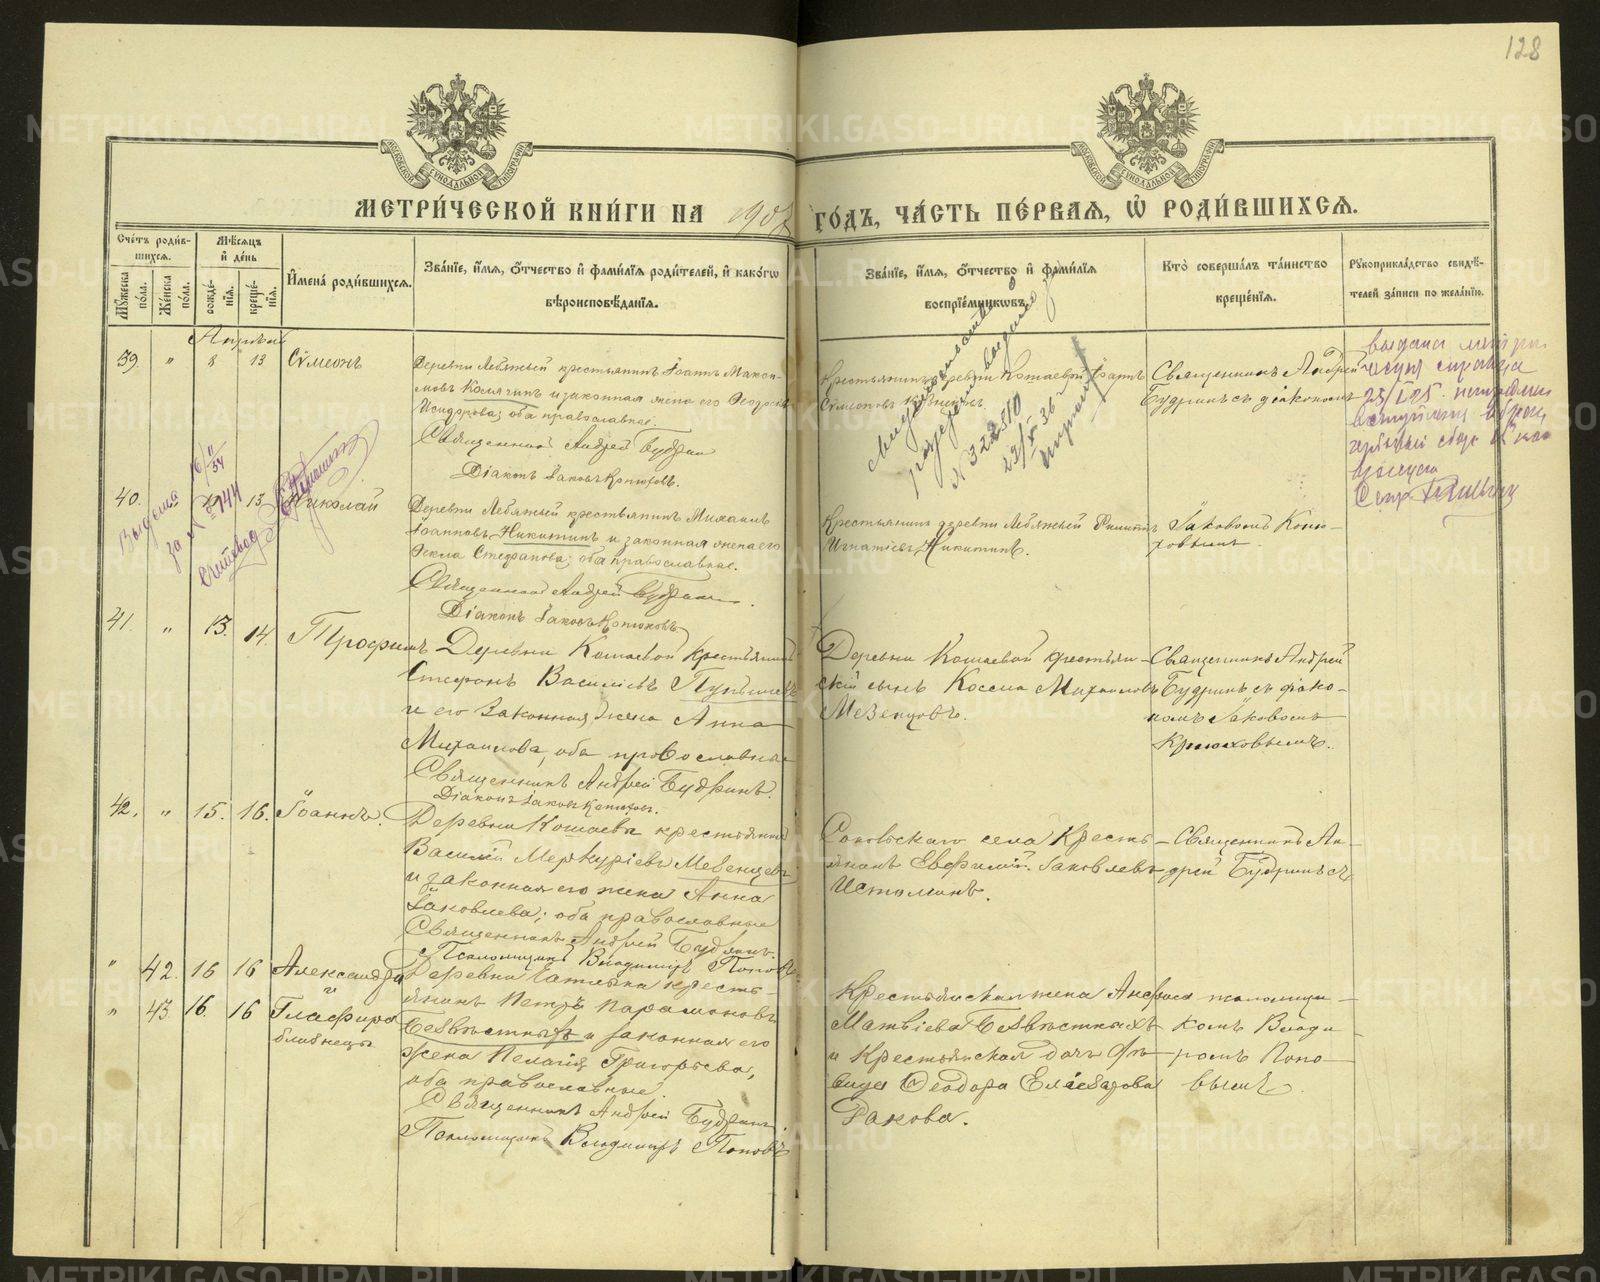 128
МОСКОВСКОЙ СѴНОДАЛЬНОЙ ТИПОГРАФІИ
МОСКОВСКОЙ СѴНОДАЛЬНОЙ ТИПОГРАФІИ
МЕТРИ́ЧЕСКОЙ КНИ́ГИ НА 1907 ГО́ДЪ, ЧА́СТЬ ПЕ́РВАЯ, Ѡ҆ РОДИ́ВШИХСЯ.
Сче́тъ роди́в-
шихся.
Му́жеска по́ла.
Же́нска по́ла.
Мѣ́сяцъ и҆ де́нь
рожде́-
нїя.
креще́-
нїя.
И҆мена̀ роди́вшихся.
Зва́нїе, и҆́мя, ѻ҆́тчество и҆ фами́лїя роди́телей, и҆ како́гѡ
вѣроисповѣ́данїя.
Зва́нїе, и҆́мя, ѻ҆́тчество и҆ фами́лїя
воспрїе́мникѡвъ.
Кто̀ соверша́лъ та́инство
креще́нїя.
Рꙋкоприкла́дство свидѣ́-
телей за́писи по жела́нїю.
Апрѣль
39. " 8 13 Сѵмеонъ
Деревни Лебяжьей крестьянинъ Іоаннъ Макси-
мовъ Колягинъ и законная жена его Ѳеодосія
Исидорова; оба православные.
Священникъ Андрей Будринъ
Діаконъ Іаковъ Конюховъ.
Крестьянинъ деревни Кошаевой Іоаннъ
Сѵмеоновъ
Священникъ Андрей
Будринъ съ діакономъ
выдана метри
ческая справка
№ 322510
23/V-36
40. 13 Николай
Выдана 16/II 34
за № 144
Деревни Лебяжьей крестьянинъ Михаилъ
Іоанновъ Никитинъ и законная жена его
Ѳекла Стефанова; оба православные.
Священникъ Андрей Будринъ.
Діаконъ Іаковъ Конюховъ
Крестьянинъ деревни Лебяжьей Филиппъ
Игнатіевъ Никитинъ.
Іаковомъ Коню-
ховымъ
41. " 13. 14. Трофимъ
Деревни Кошаевой крестьянинъ
Стефанъ Василіевъ
и его законная жена Анна
Михаилова, оба православные
Священникъ Андрей Будринъ.
Діаконъ Іаковъ Конюховъ.
Деревни Кошаевой крестьян-
скій сынъ Косма Михаиловъ
Мезенцовъ.
Священникъ Андрей
Будринъ съ діако-
номъ Іаковомъ
Крюховымъ.
42. " 15. 16. Іоаннъ.
Деревни Кошаева крестьянинъ
Василій Меркуріевъ Мезенцевъ
и законная его жена Анна
Іаковлева; оба православные
Священникъ Андрей Будринъ.
Псаломщикъ Владимиръ Поповъ
села Кресть-
янинъ Евфимій Іаковлевъ
Истоминъ.
Священникъ Ан-
дрей Будринъ съ
" 42. 16 16 Александра
и
" 43. 16. 16 Глафира
близнецы
Деревни кресть-
янинъ Петръ Парамоновъ
Безвѣстныхъ и законная его
жена Пелагія Григорьева,
оба православные.
Священникъ Андрей Будринъ.
Псаломщикъ Владимиръ Поповъ
Крестьянская жена Анфиса
Матвіева Безвѣстныхъ
и Крестьянская дочь дѣ-
вица Ѳеодора Елеазарова
Ракова.
псаломщи-
комъ Влади-
ромъ Попо-
вымъ